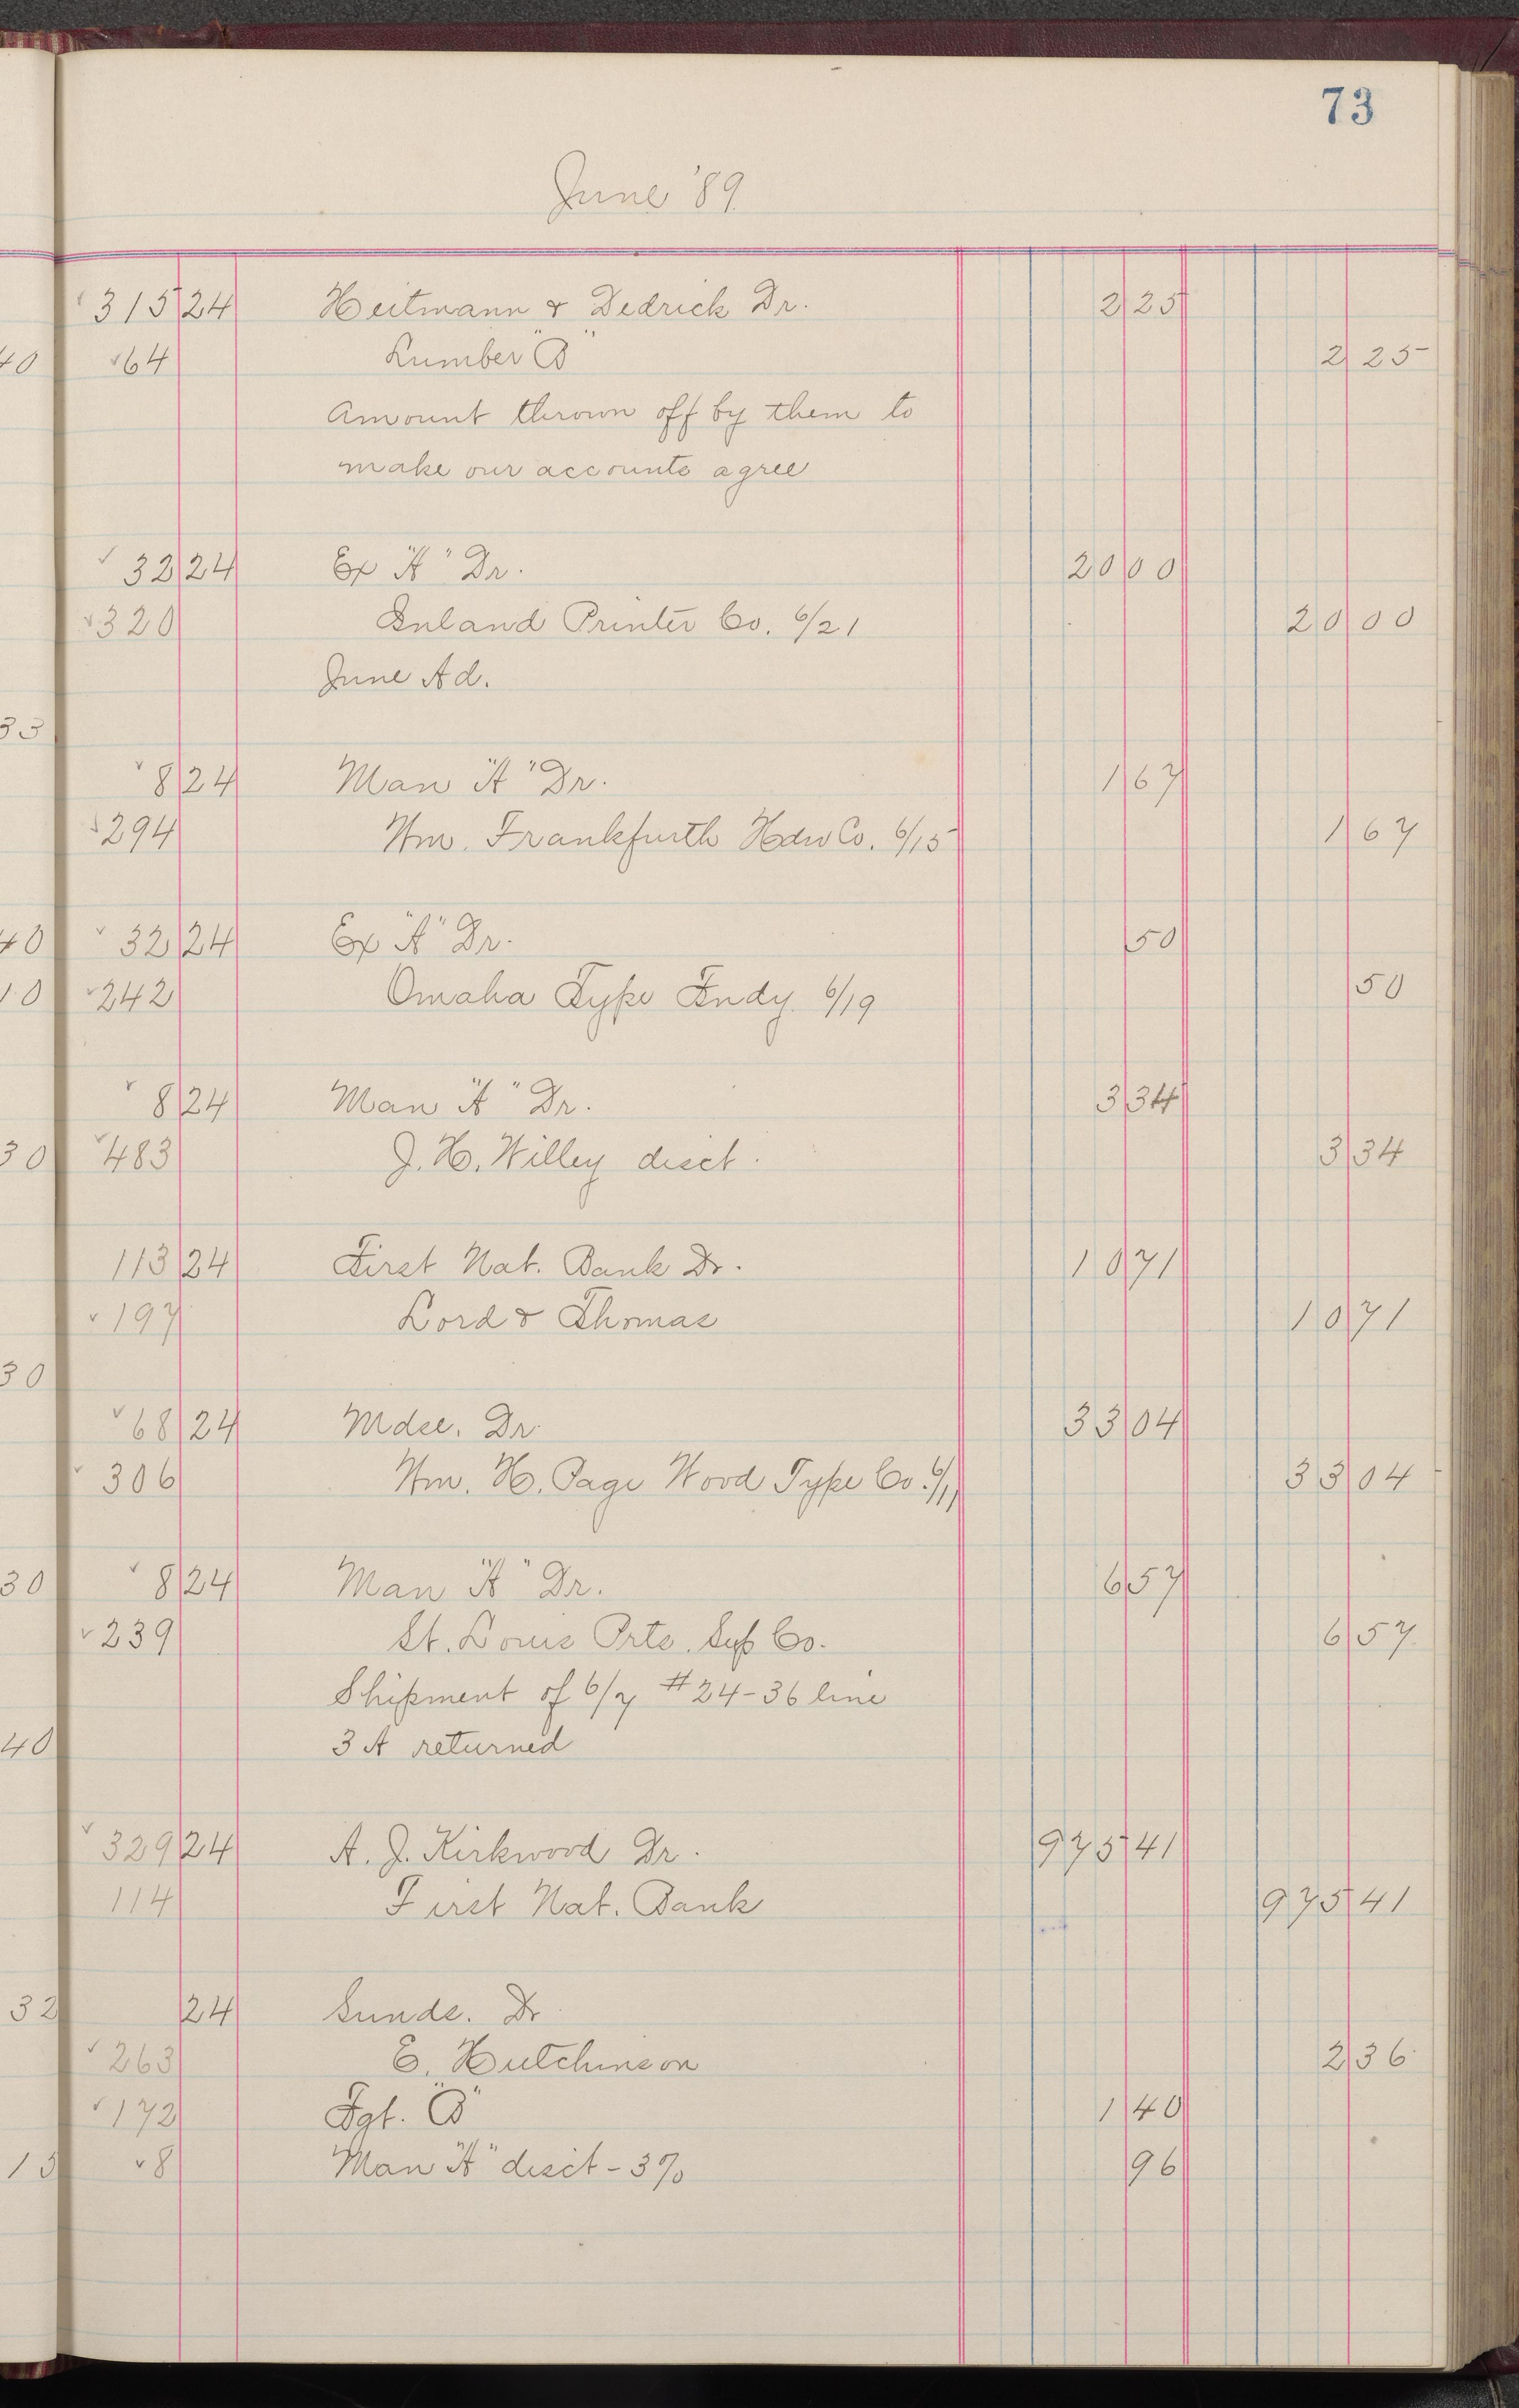 73
June '89.
315 24 Heitmann & Dedrick Dr. 2 25
40 64 Lumber "B" 2 25
Amount thrown off by them to
make our accounts agree
32 24 Ex "A" Dr. 20 00
320 Inland Printer Co. 6/21 20 00
June Ad.
33
8 24 Man "A" Dr. 1 67
294 Wm. Frankfurth Hdw Co. 6/15 1 67
40 32 24 Ex "A" Dr. 50
10 242 Omaha Type Fndy. 6/19 50
8 24 Man "A" Dr. 3 34
30 483 J. H. Willey disct. 3 34
113 24 First Nat. Bank Dr. 10 71
197 Lord & Thomas 10 71
30
68 24 Mdse. Dr. 33 04
306 Wm. H. Page Wood Type Co. 6/11 33 04
30 8 24 Man "A" Dr. 6 57
239 St. Louis Prts. Sup Co. 6 57
Shipment of 6/7 #24-36 line
40 3 A returned
329 24 A. J. Kirkwood Dr. 975 41
114 First Nat. Bank 975 41
32 24 Sunds. Dr
263 E. Hutchinson 2 36
172 Fgt. "B" 1 40
15 8 Man "A" disct - 3% 96